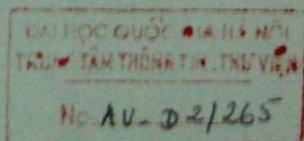 ĐẠI HỌC QUỐC GIA HÀ NỘI
TRUNG TÂM THÔNG TIN - THƯ VIỆN
No AV-D2/265